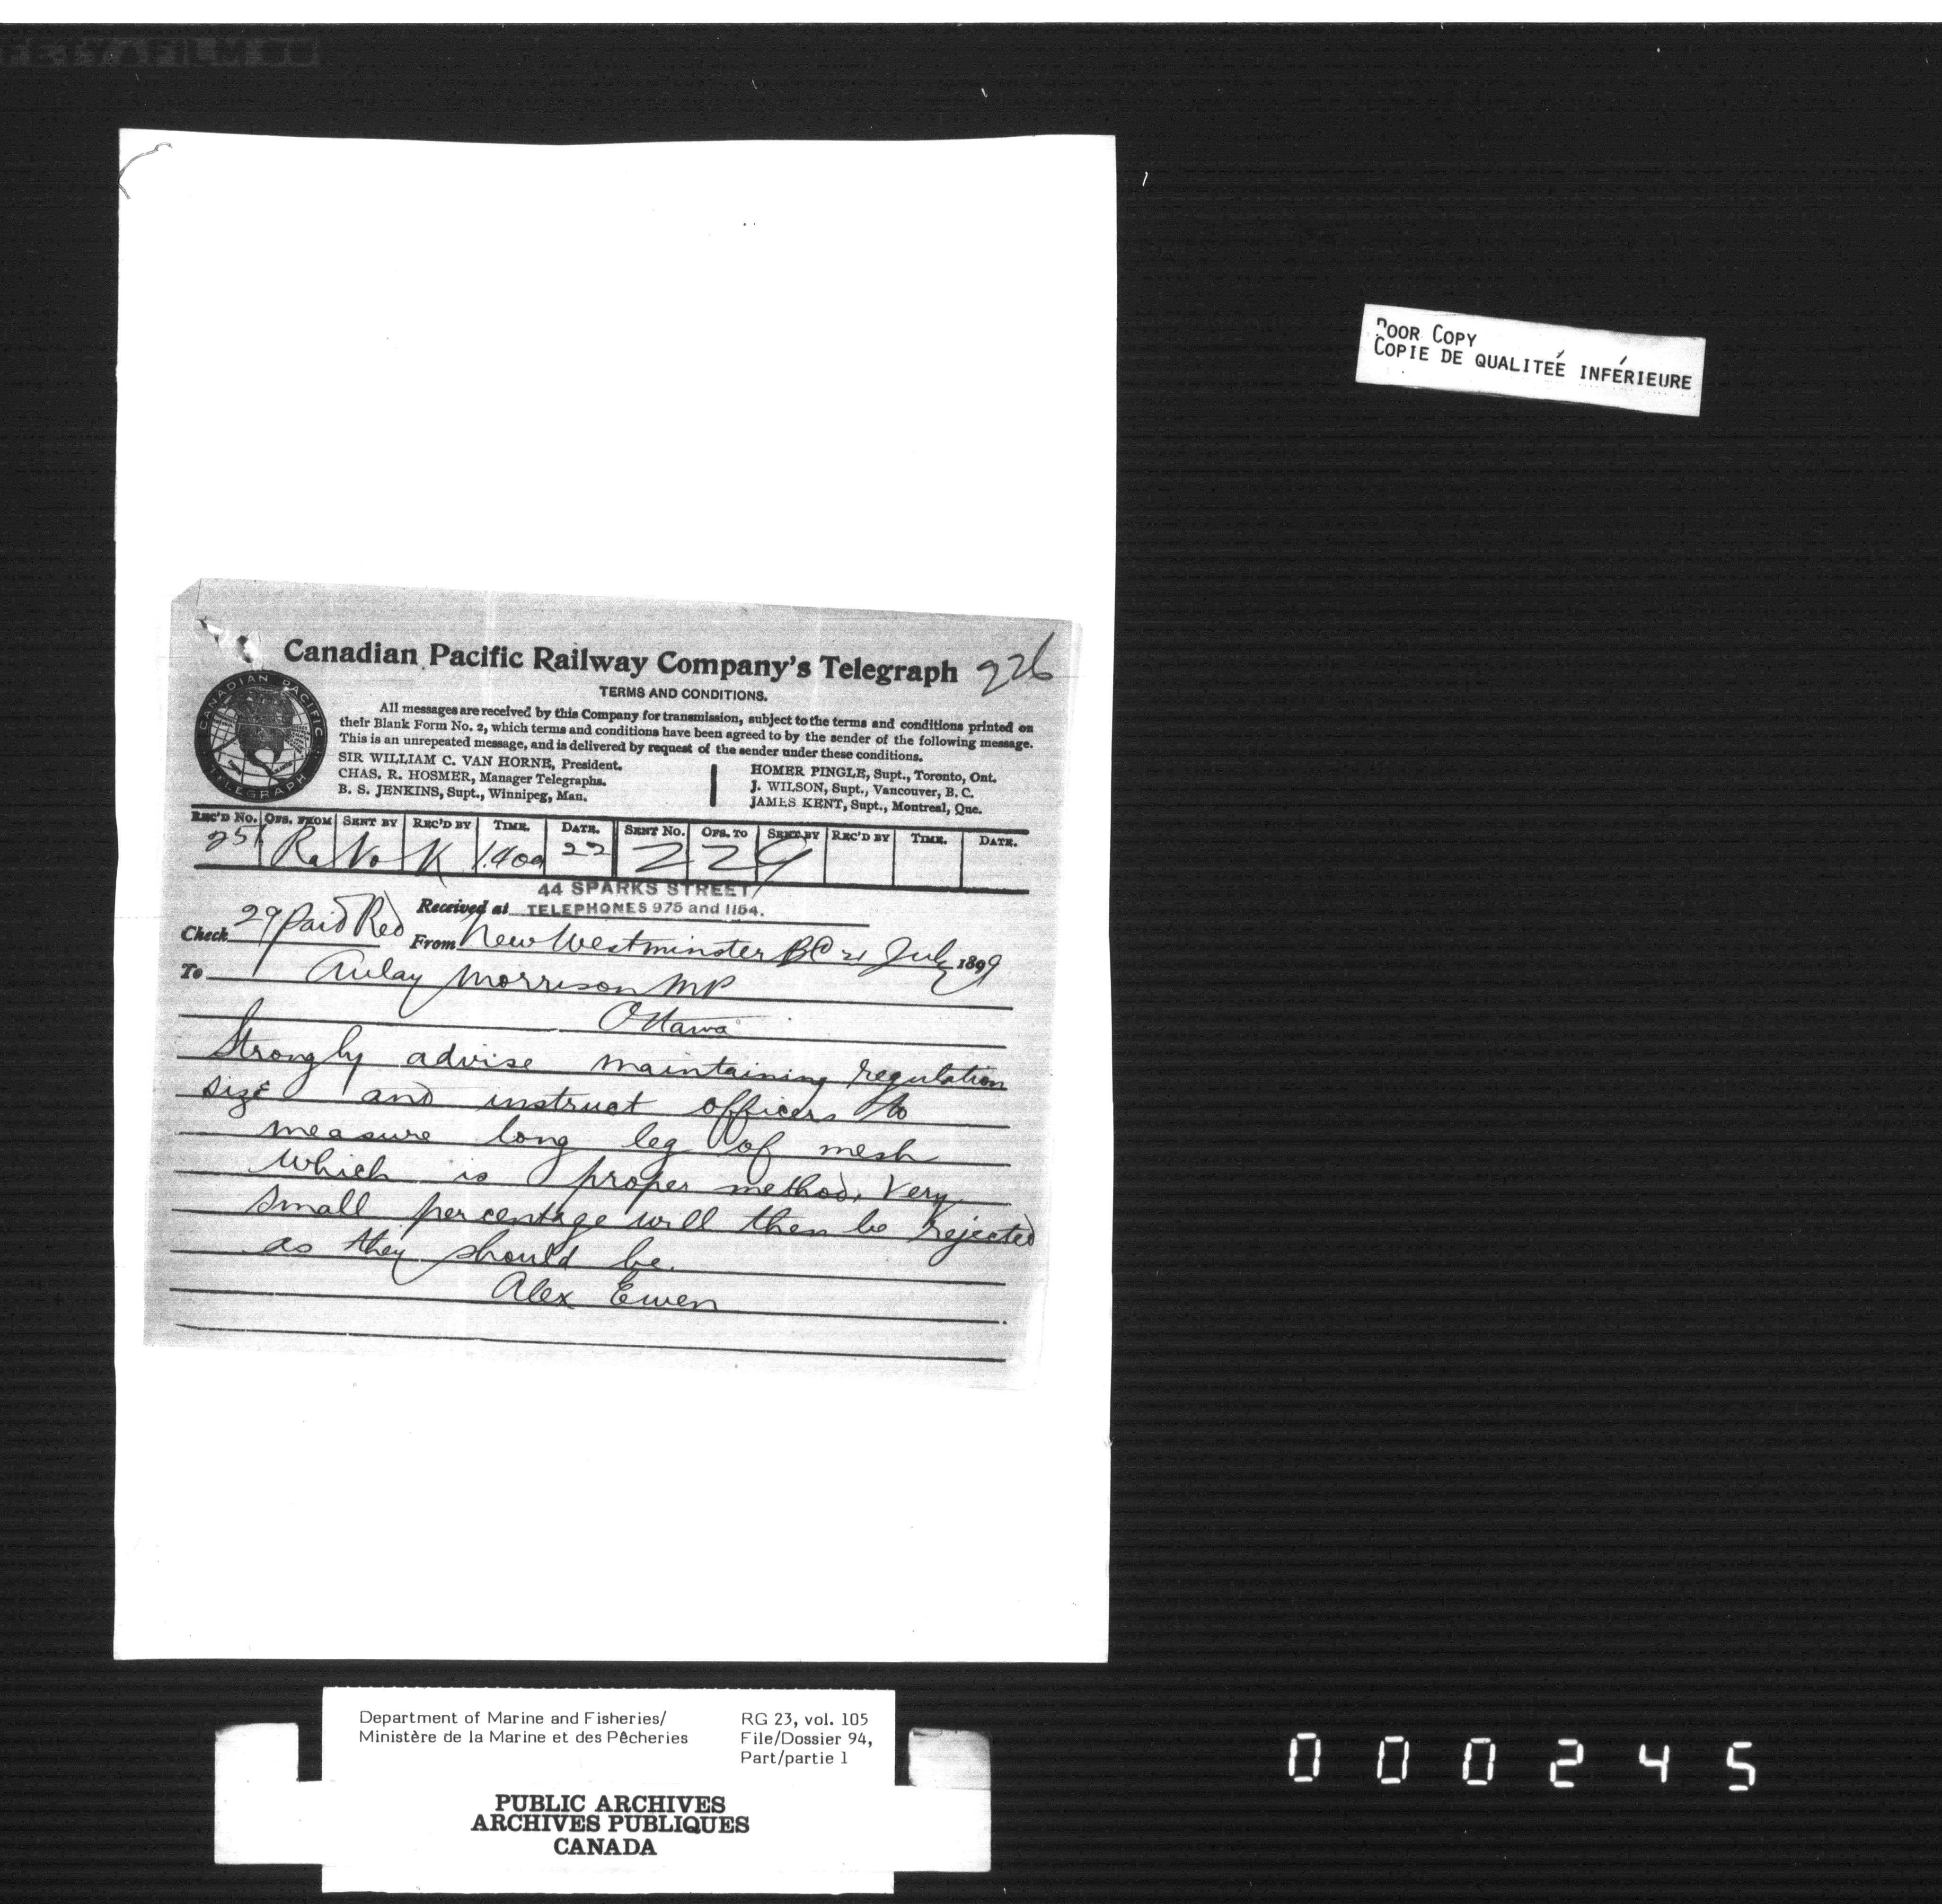 FETY A FILM
POOR COPY
COPIE DE QUALITEÉ INFÉRIEURE
Canadian Pacific Railway Company's Telegraph 226
TERMS AND CONDITIONS.
All messages are received by this Company for transmission, subject to the terms and conditions printed on
their Blank Form No. 2, which terms and conditions have been agreed to by the sender of the following message.
This is an unrepeated message, and is delivered by request of the sender under these conditions.
SIR WILLIAM C. VAN HORNE, President.
CHAS. R. HOSMER, Manager Telegraphs.
B. S. JENKINS, Supt., Winnipeg, Man.
HOMER PINGLE, Supt., Toronto, Ont.
J. WILSON, Supt., Vancouver, B. C.
JAMES KENT, Supt., Montreal, Que.
CANADIAN PACIFIC TELEGRAPH
REC'D No. OFS. FROM SENT BY REC'D BY TIME. DATE. SENT No. OFS. TO SENT BY REC'D BY TIME. DATE.
251 Ra No K 1.40a 22 229
44 SPARKS STREET
Received at TELEPHONES 975 and 1154.
Check 29 Paid Red From New Westminster BC 21 July 1899
To Aulay Morrison MP
Ottawa
Strongly advise maintaining regulation
size and instruct officers to
measure long leg of mesh
which is proper method. Very
small percentage will then be rejected
as they should be.
Alex Ewen
Department of Marine and Fisheries/
Ministère de la Marine et des Pêcheries
RG 23, vol. 105
File/Dossier 94,
Part/partie 1
PUBLIC ARCHIVES
ARCHIVES PUBLIQUES
CANADA
000245